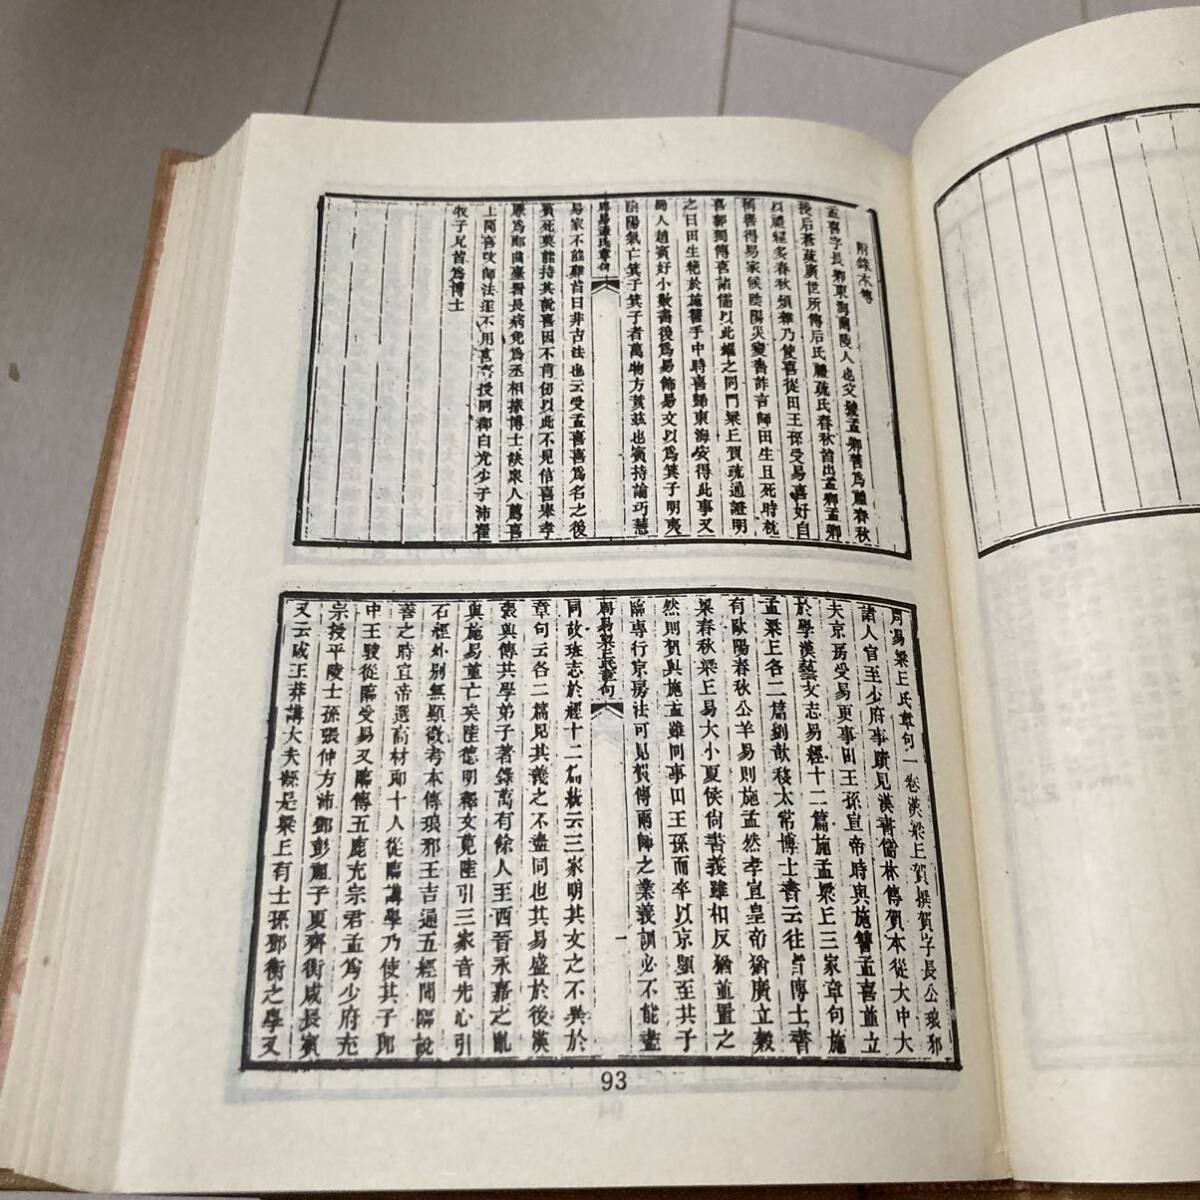 附錄本傳
孟喜字長卿東海蘭陵人也父號孟卿善爲禮春秋
授后蒼疏廣世所傳后氏禮疏氏春秋皆出孟卿孟卿
以禮經多春秋煩雜乃使喜從田王孫受易喜好自
稱譽得易家候陰陽災變書詐言師田生且死時枕
喜郄獨傳喜諸儒以此耀之同門梁丘賀疏通證明
之曰田生絶於施讐手中時喜歸東海安得此事又
蜀人趙賓好小數書後爲易飾易文以爲箕子明夷
陰陽氣亡箕子箕子者萬物方荄茲也賓持論巧慧
周易孟氏章句
易家不能難皆曰非古法也云受孟喜喜爲名之後
賓死莫能持其說喜因不肯仞以此不見信喜舉孝
廉爲郎曲臺署長病免爲丞相掾博士缺衆人薦喜
上聞喜改師法遂不用喜喜授同郡白光少子沛翟
牧子兄皆爲博士
周易梁丘氏章句一卷漢梁丘賀撰賀字長公琅邪
諸人官至少府事蹟見漢書儒林傳賀本從大中大
夫京房受易更事田王孫宣帝時與施讐孟喜並立
於學漢藝文志易經十二篇施孟梁丘三家章句施
孟梁丘各二篇劉歆移太常博士書云往者博士書
有歐陽春秋公羊易則施孟然孝宣皇帝猶廣立穀
梁春秋梁丘易大小夏侯尚書義雖相反猶並置之
然則賀與施孟雖同事田王孫而卒以京顯至其子
臨專行京房法可見賀傳兩師之業義訓必不能盡
周易梁丘氏章句
一
同故班志於經十二篇統云三家明其文之不異於
章句云各二篇見其義之不盡同也其易盛於後漢
張興傳其學弟子著錄萬有餘人至西晉永嘉之亂
與施易並亡矣陸德明釋文莧陸引三家音先心引
石經外別無顯徵考本傳琅邪王吉通五經聞臨說
善之時宣帝選高材郎十人從臨講學乃使其子郎
中王駿從臨受易又臨傳五鹿充宗君孟爲少府充
宗授平陵士孫張仲方沛鄧彭祖子夏齊衡咸長賓
又云咸王莽講大夫繇是梁丘有士孫鄧衡之學又
93